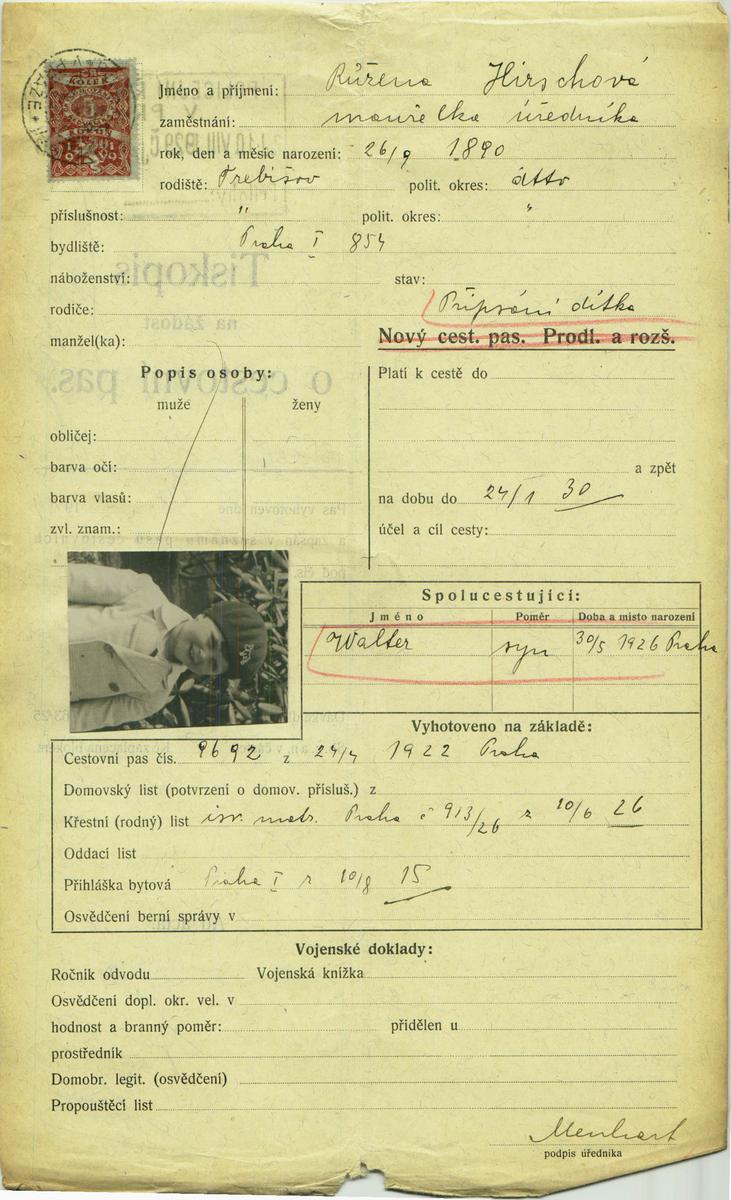 KOLEK
5
Jméno a příjmení: Růžena Hirschová
zaměstnání: manželka úředníka
rok, den a měsíc narození: 26/9 1890
rodiště: Trebišov polit. okres: dtto
příslušnost: " polit. okres: "
bydliště: Praha I 854
náboženství: stav:
rodiče: Připsání dítka
manžel(ka): Nový cest. pas. Prodl. a rozš.
Popis osoby: Platí k cestě do
muže ženy
obličej:
barva očí: a zpět
barva vlasů: na dobu do 24/1 30
zvl. znam.: účel a cíl cesty:
Spolucestující:
Jméno Poměr Doba a místo narození
Walter syn 30/5 1926 Praha
Vyhotoveno na základě:
Cestovní pas čís. 9692 z 24/4 1922 Praha
Domovský list (potvrzení o domov. přísluš.) z
Křestní (rodný) list isr. matr. Praha č 913/26 z 10/6 26
Oddací list
Přihláška bytová Praha I z 10/8 15
Osvědčení berní správy v
Vojenské doklady:
Ročník odvodu Vojenská knížka
Osvědčení dopl. okr. vel. v
hodnost a branný poměr: přidělen u
prostředník
Domobr. legit. (osvědčení)
Propouštěcí list
Menhart
podpis úředníka